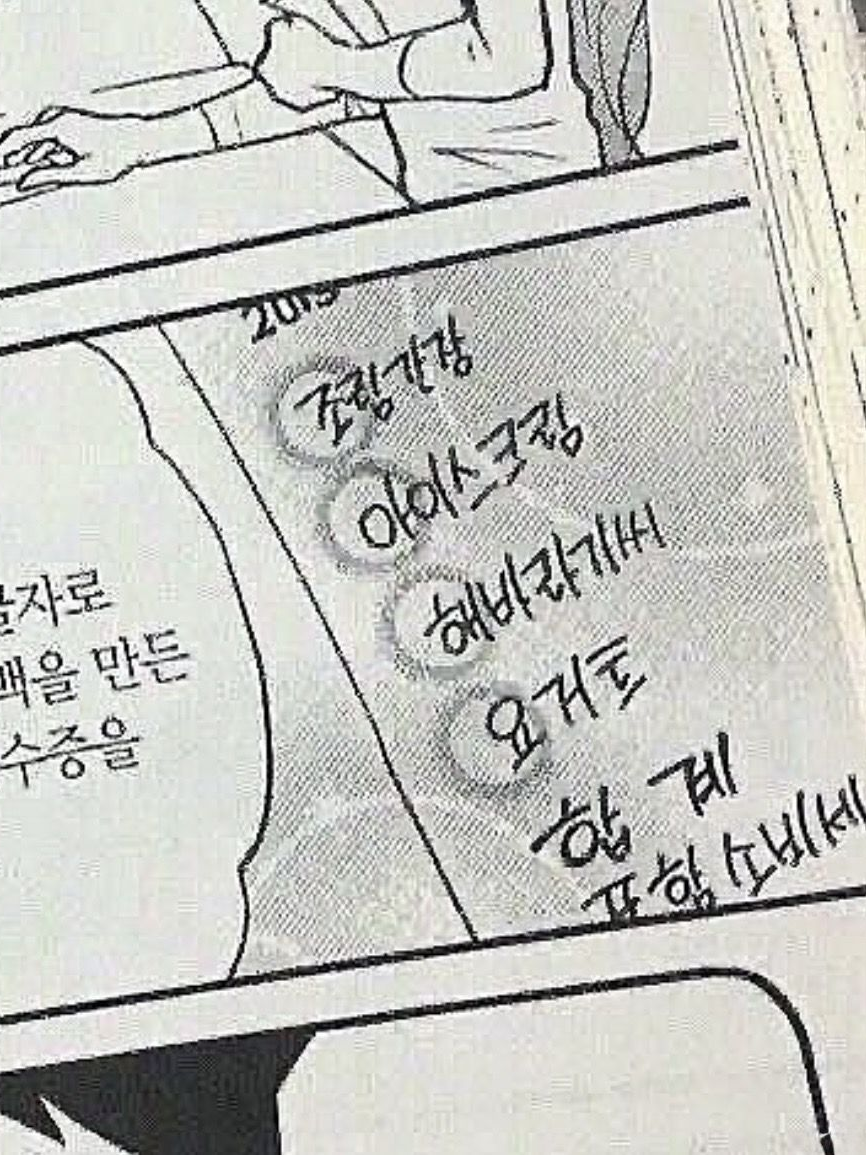 자로
백을 만든
수증을
2015
조림간장
아이스크림
해바라기씨
요거트
합 계
포함 소비세